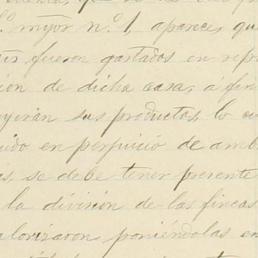 mayor n.º 1, aparece, qu
fueron gastados en repa
ión de dicha casa, á fin
uyeran sus productos, lo cu
uido en perjuicio de amb
s, se debe tener presente
la división de las fincas
alorizaron poniéndolas en